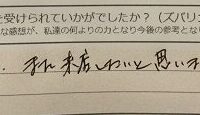 を受けられていかがでしたか?(ズバリ
な感想が、私達の何よりの力となり今後の参考とな
また来店したいと思いま